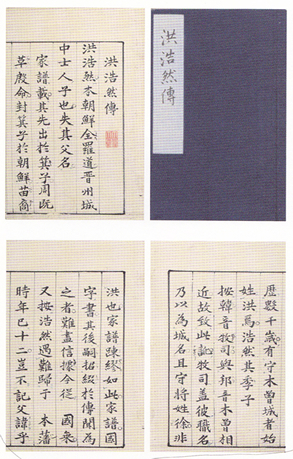 洪浩然傳
洪浩然傳
洪浩然本朝鮮全羅道晋州城
中士人子也失其父名
家譜載其先出於箕子周既
革殷命封箕子於朝鮮苗裔
歴數千歲有守木曽城者始
姓洪焉浩然其季子
按韓音牧司與邦音木曽相
近故致此訛牧司蓋彼職名
乃以為城名且守将姓徐非
洪也家譜疎繆如此家譜國
字書其後嗣招綴於傳聞為
之者難盡信據今從 國乗
又按浩然遇難歸于 本藩
時年已十二豈不記父諱乎